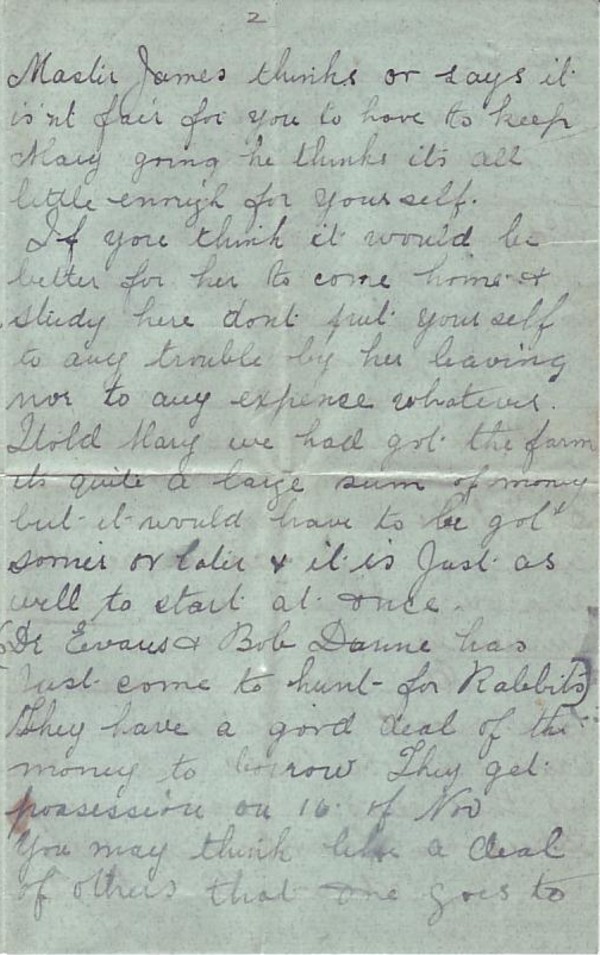 2
Master James thinks or says it
is'nt fair for you to have to keep
Mary going he thinks its all
little enough for yourself.
If you think it would be
better for her to come home &
study here dont put yourself
to any trouble by her leaving
nor to any expence whatever.
I told Mary we had got the farm
its quite a large sum of money
but it would have to be got
sooner or later & it is Just as
well to start at once.
(Dr Evans & Bob Dunne has
Just come to hunt for Rabbits)
They have a good deal of the
money to borrow They get
possession on 16 of Nov
You may think like a deal
of others that one goes to